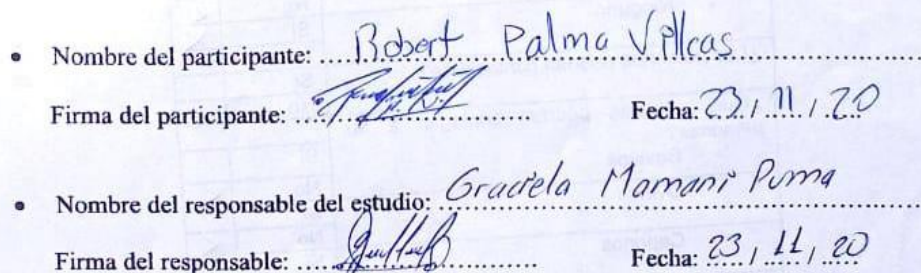 • Nombre del participante: Robert Palma Villcas
Firma del participante: Fecha: 23 / 11 / 20
• Nombre del responsable del estudio: Graciela Mamani Puma
Firma del responsable: Fecha: 23 / 11 / 20